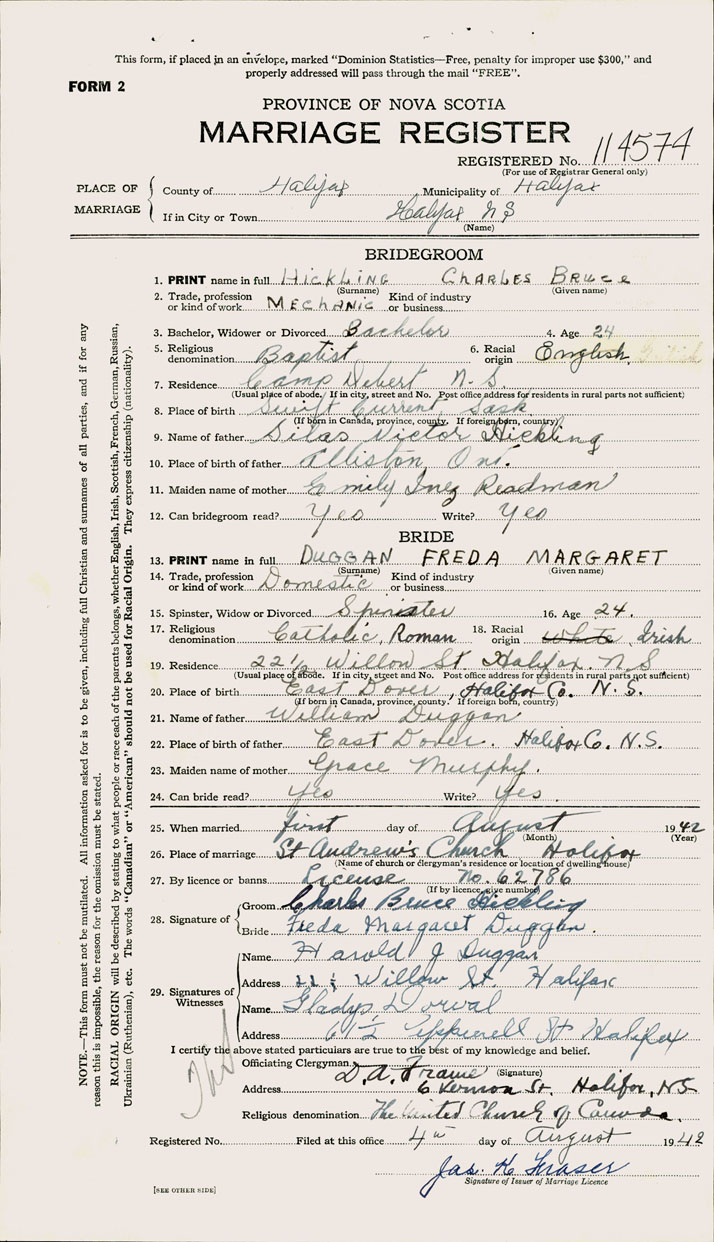 This form, if placed in an envelope, marked "Dominion Statistics—Free, penalty for improper use $300," and
properly addressed will pass through the mail "FREE".
FORM 2
PROVINCE OF NOVA SCOTIA
MARRIAGE REGISTER
REGISTERED No. 114574
(For use of Registrar General only)
PLACE OF MARRIAGE
County of Halifax Municipality of Halifax
If in City or Town Halifax N S
(Name)
BRIDEGROOM
1. PRINT name in full HICKLING CHARLES BRUCE
(Surname) (Given name)
2. Trade, profession or kind of work MECHANIC Kind of industry or business
3. Bachelor, Widower or Divorced Bachelor 4. Age 24
5. Religious denomination Baptist 6. Racial origin English
7. Residence Camp Debert N. S.
(Usual place of abode. If in city, street and No. Post office address for residents in rural parts not sufficient)
8. Place of birth Swift Current, Sask
(If born in Canada, province, county. If foreign born, country)
9. Name of father Silas Victor Hickling
10. Place of birth of father Elliston Ont.
11. Maiden name of mother Emily Inez Readman
12. Can bridegroom read? Yes Write? Yes
BRIDE
13. PRINT name in full DUGGAN FREDA MARGARET
(Surname) (Given name)
14. Trade, profession or kind of work Domestic Kind of industry or business
15. Spinster, Widow or Divorced Spinster 16. Age 24.
17. Religious denomination Catholic, Roman 18. Racial origin White Irish
19. Residence 22½ Willow St. Halifax. N.S
(Usual place of abode. If in city, street and No. Post office address for residents in rural parts not sufficient)
20. Place of birth East Dover, Halifax Co. N. S.
(If born in Canada, province, county. If foreign born, country)
21. Name of father William Duggan
22. Place of birth of father East Dover. Halifax Co. N.S.
23. Maiden name of mother Grace Murphy.
24. Can bride read? Yes Write? Yes.
25. When married first day of August 1942
(Month) (Year)
26. Place of marriage St Andrew's Church Halifax
(Name of church or clergyman's residence or location of dwelling house)
27. By licence or banns License No. 62786
(If by licence, give number)
28. Signature of
Groom Charles Bruce Hickling
Bride Freda Margaret Duggan.
29. Signatures of Witnesses
Name Harold J Duggan
Address 22½ Willow St. Halifax
Name Gladys Dorval
Address 61½ St Halifax
I certify the above stated particulars are true to the best of my knowledge and belief.
Officiating Clergyman D. A. Frame
(Signature)
Address 6 Vernon St. Halifax, N.S.
Religious denomination The United Church of Canada.
Registered No. Filed at this office 4th day of August 1942
Jas. H Fraser
Signature of Issuer of Marriage Licence
[SEE OTHER SIDE]
NOTE.—This form must not be mutilated. All information asked for is to be given, including full Christian and surnames of all parties, and if for any
reason this is impossible, the reason for the omission must be stated.
RACIAL ORIGIN will be described by stating to what people or race each of the parents belongs, whether English, Irish, Scottish, French, German, Russian,
Ukrainian (Ruthenian), etc. The words "Canadian" or "American" should not be used for Racial Origin. They express citizenship (nationality).